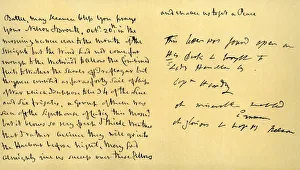 your Father's Prayers, Octr. 20th in the
morning we were close to the mouth of the
Streights but the Wind had not come far
enough to the Westward to allow the Combined
Fleets to weather the Shoals off Trafalgar but
they were counted as far as forty Sail of Ships
of War which I suppose to be 34 of the Line
and six frigates, a group of them was
seen off the Lighthouse of Cadiz this Morng
but it blows so very fresh & thick weather
that I rather believe they will go into
the Harbour before night, May God
Almighty give us success over these fellows
and enable us to get a Peace
This letter was found open on
His Desk & brought to
Lady Hamilton by
Capt Hardy
oh miserable wretched
Emma
oh glorious & happy Nelson